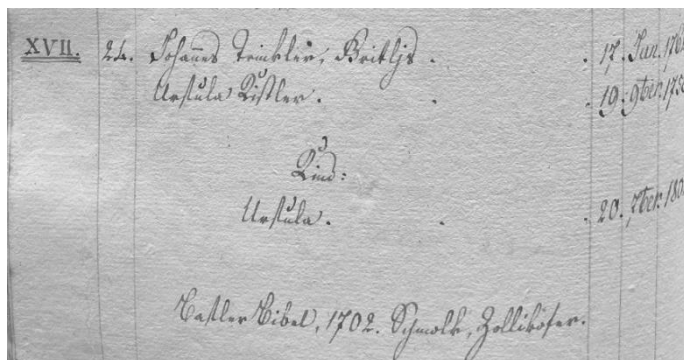 XVII. 24. Johannes Trinkler, Britljs . . 17. Jun. 176
Ursula Küstler. . . 19. 9ber. 175
Kind:
Ursula. . . 20. 7ber. 180
Basler Bibel, 1702. Schmolk, Zollikofer.